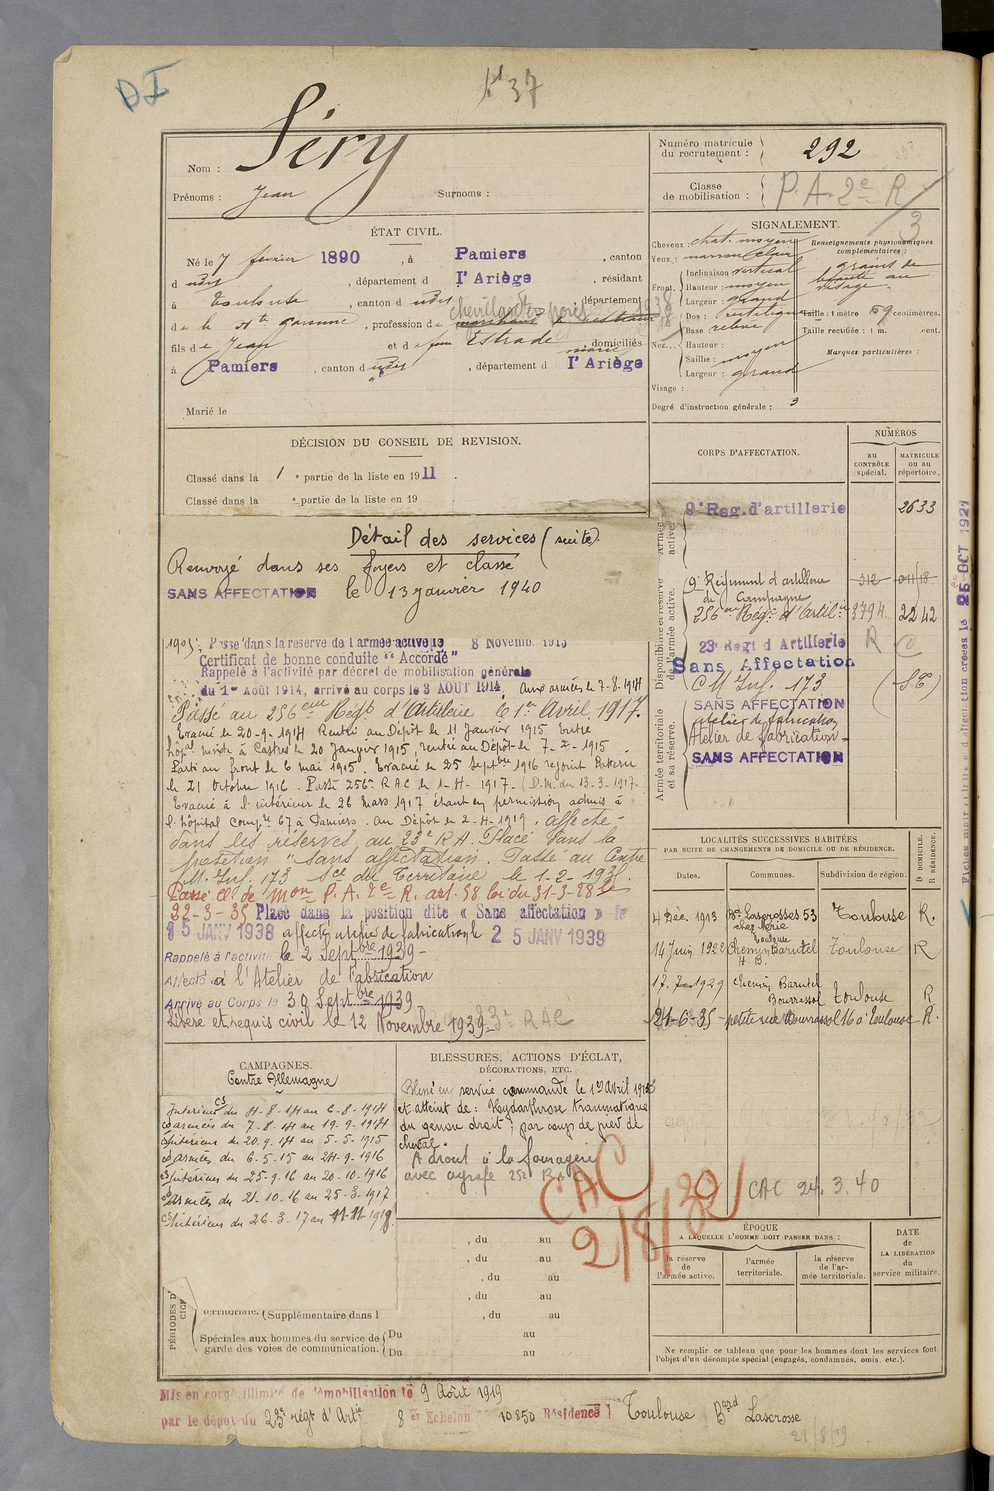 DI
37
Nom : Séry
Prénoms : Jean Surnoms :
Numéro matricule du recrutement : 292
Classe de mobilisation : P. A. 2e R/3
ÉTAT CIVIL.
Né le 7 février 1890, à Pamiers, canton
d udit, département d l'Ariège, résidant
à Toulouse, canton d udit, département
de la Hte Garonne, profession de
fils de Jean et de feu Estrade domiciliés
à Pamiers, canton d udit, département d l'Ariège
Marié le
SIGNALEMENT.
Cheveux : chat. moyen
Yeux : marron clair
Front. Inclinaison vertical
Hauteur : moyen
Largeur : grand
Nez. Dos : rectiligne
Base relevé
Hauteur :
Saillie : moyen
Largeur : grand
Visage :
Degré d'instruction générale : 3
Renseignements physionomiques complémentaires :
grains de
beauté au
visage.
Taille : 1 mètre 69 centimètres.
Taille rectifiée : 1 m. cent.
Marques particulières :
DÉCISION DU CONSEIL DE REVISION.
Classé dans la 1e partie de la liste en 1911.
Classé dans la e partie de la liste en 19
Détail des services (suite).
Renvoyé dans ses foyers et classé
SANS AFFECTATION le 13 janvier 1940
Passé dans la réserve de l'armée active le 8 Novemb. 1913
Certificat de bonne conduite "Accordé"
Rappelé à l'activité par décret de mobilisation générale
du 1er Août 1914, arrivé au corps le 3 AOUT 1914, Aux armées le 7-8-1914
Passé au 256eme Régt d'Artillerie le 1er Avril 1917.
Evacué le 20-9-1914 Rentré au Dépôt le 11 Janvier 1915 entré
hôpal mixte à Castres le 20 Janvier 1915, rentré au Dépôt le 7-2-1915.
Parti au front le 6 mai 1915. Evacué le 25 Septbre 1916 rejoint Batterie
le 21 Octobre 1916. Passé 256e RAC le 1-4-1917. (D.M. du 13-3-1917.
Evacué à l'intérieur le 26 Mars 1917 étant en permission admis à
l'hôpital compre 67 à Pamiers. Au Dépôt le 2-4-1919. affecté
dans les réserves au 23e R.A. Placé dans la
position "sans affectation. Passé au Centre
M. Inf. 173 Sce du Territoire le 1-2-193
Passé Cl. de Mon P. A. 2e R. art. 58 loi du 31-3-28 le
22-3-35 Placé dans la position dite « Sans affectation » le
15 JANV 1938 affecté atelier de fabrication le 25 JANV 1939
Rappelé à l'activité le 2 Septbre 1939-
Affecté à l'Atelier de fabrication
Arrivé au Corps le 30 Septbre 1939
Libéré et requis civil le 12 Novembre 1939 23e RAC
CORPS D'AFFECTATION.
NUMÉROS
AU CONTRÔLE spécial.
MATRICULE ou au répertoire.
Armée active.
9e Reg. d'artillerie 2633
Disponibilité et réserve de l'armée active.
9e Régiment d'artillerie
de Campagne
256eme Régt d'Artilie 3794 2242
23e Régt d'Artillerie R
Sans Affectation
CM Inf. 173
Armée territoriale et sa réserve.
SANS AFFECTATION
atelier de fabrication
Atelier de fabrication-
SANS AFFECTATION
25 OCT 1927
LOCALITÉS SUCCESSIVES HABITÉES
PAR SUITE DE CHANGEMENTS DE DOMICILE OU DE RÉSIDENCE.
Dates. Communes. Subdivision de région. D DOMICILE. R RÉSIDENCE.
4 Déc. 1913 Bd Lascrosses 53 Toulouse R.
14 Juin 1922 Chemin Barutel Toulouse R
17-7-1929 Chemin Barutel Bourrassol Toulouse R
21-6-35 petite rue Bourrassol 16 à Toulouse R.
CAC 24. 3. 40
CAMPAGNES.
Contre Allemagne
Intérieur du 4-8-14 au 6-8-1914
armées du 7.8.14 au 19.9-1914
Intérieur du 20.9.14 au 5-5-1915
armées du 6.5.15 au 24-9-1916
Intérieur du 25-9-16 au 20-10-1916
armées du 21.10.16 au 25-3-1917
Intérieur du 26-3-17 au 11-11-1918
BLESSURES, ACTIONS D'ÉCLAT,
DÉCORATIONS, ETC.
Blessé en service commandé le 1er avril
et atteint de : Heydarthrose traumatique
du genou droit ; par coup de pied de
cheval.
A droit à la fourragère
avec agrafe
CAC
2/8/39
, du au
, du au
, du au
, du au
, du au
PÉRIODES D'EXERCICE
territoriale. (Supplémentaire dans l
Spéciales aux hommes du service de garde des voies de communication. Du au
Du au
ÉPOQUE
A LAQUELLE L'HOMME DOIT PASSER DANS :
la réserve de l'armée active.
l'armée territoriale.
la réserve de l'armée territoriale.
DATE de LA LIBÉRATION du service militaire.
Ne remplir ce tableau que pour les hommes dont les services font
l'objet d'un décompte spécial (engagés, condamnés, omis, etc.).
Mis en congé illimité de démobilisation le 9 Août 1919
par le dépôt du 23e régt d'Artie 8e Echelon 10850 Résidence : Toulouse Bard Lascrosse